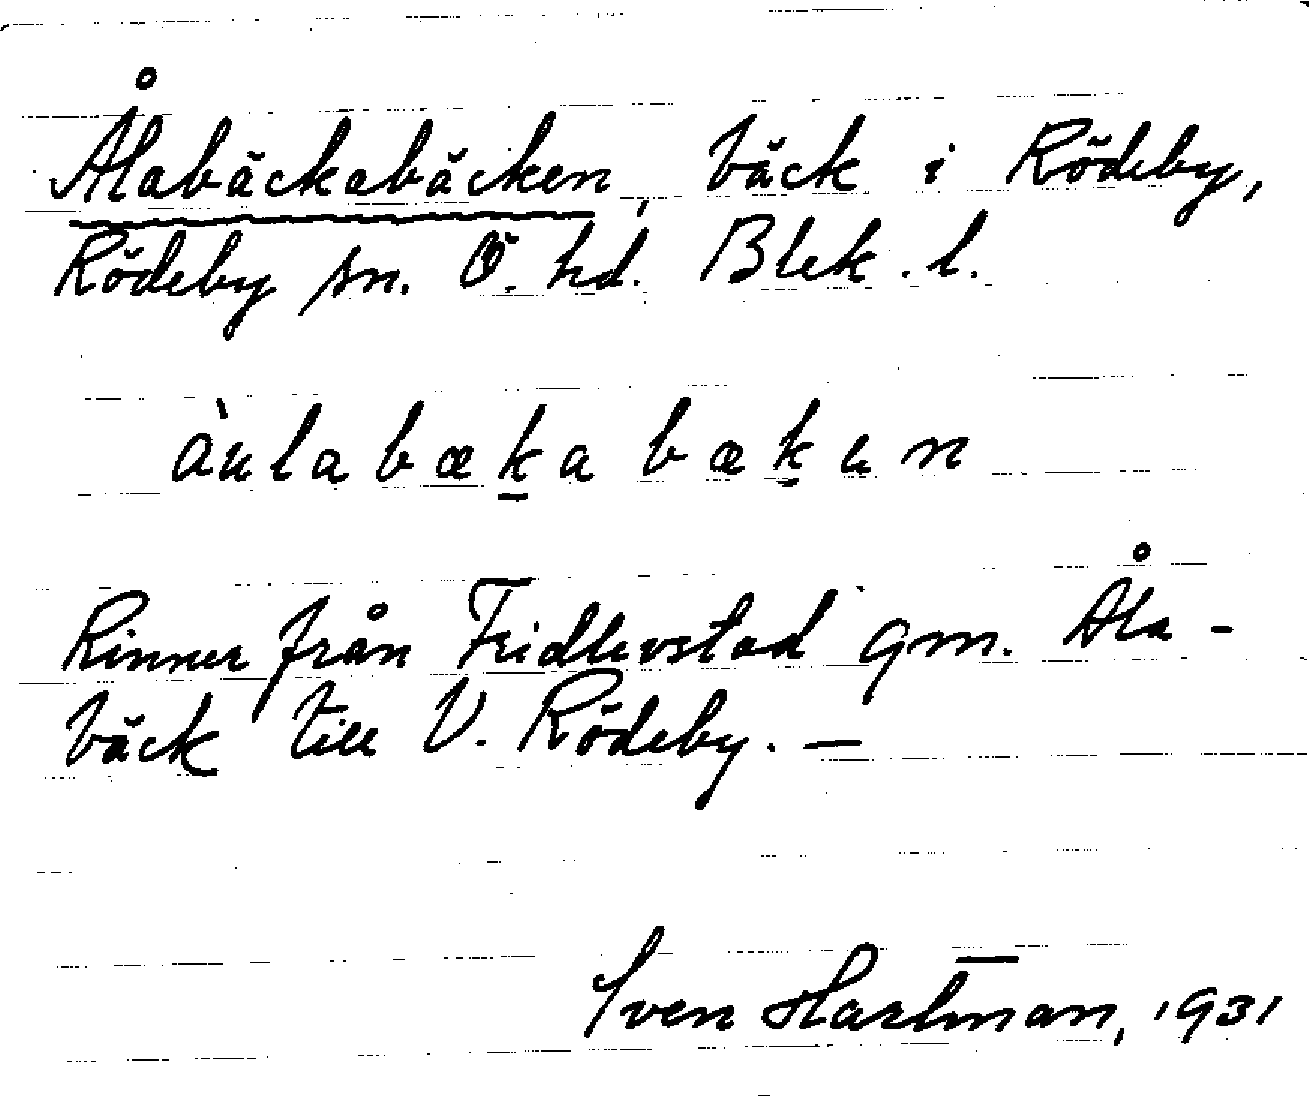 Ålabäckabäcken, bäck i Rödeby,
Rödeby sn. Ö. hd. Blek. l.
àulabæk̠a bæk̠en
Rinner från Fridlevstad gm. Åla-
bäck till V. Rödeby. —
Sven Hartman, 1931